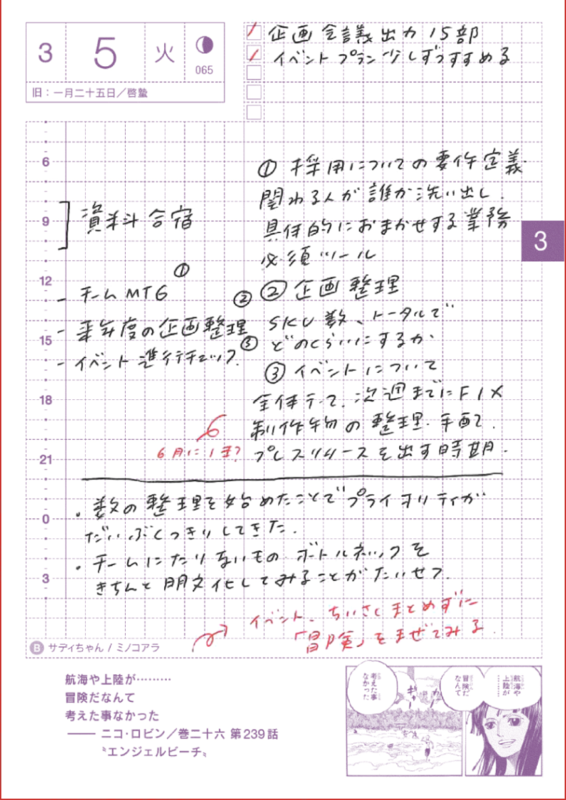 3 5 火
065
旧：一月二十五日／啓蟄
企画会議出力 15部
イベントプラン少しずつすすめる
6
9
12
15
18
21
0
3
資料合宿
- チームMTG ①
- 来年度の企画整理 ②
- イベント進行チェック ③
① 採用についての要件定義
関わる人が誰か洗い出し
具体的におまかせする業務
必須ツール
② 企画整理
SKU数、トータルで
どのくらいにするか
③ イベントについて
全体テーマ、次週までにFIX
制作物の整理.手配て.
プレスリリースを出す時期.
6月に1まつ
・数の整理を始めたことでプライオリティが
だいぶくっきりしてきた.
・チームにたりないもの ボトルネックを
きちんと明文化してみることがたいせつ.
イベント、ちいさくまとめずに
「冒険」をまぜてみる
3
B サディちゃん / ミノコアラ
航海や上陸が………
冒険だなんて
考えた事なかった
―― ニコ・ロビン／巻二十六 第239話
〝エンジェルビーチ〟
航海や
上陸が
……
冒険だ
なんて
考えた事
なかった